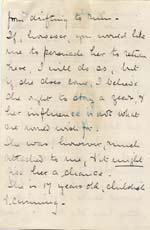 from drifting to ruin.
If, however, you would like
me to persuade her to return
here, I will do so, but
if she does come, I believe
she ought to stay a year, &
her influence is not what
we would wish for.
She was, however, much
attached to me, & it might
give her a chance.
She is 17 years old, childish
& cunning.